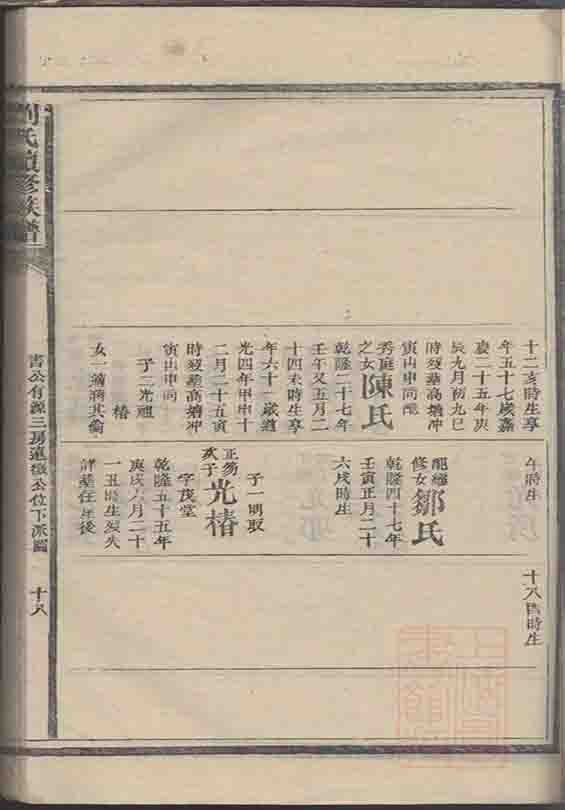 十二亥時生享
年五十七歲嘉
慶二十五年庚
辰九月初九巳
時歿葬高塘冲
寅山申向配
秀庭
之女陳氏
乾隆二十七年
壬午又五月二
十四未時生享
年六十一歲道
光四年甲申十
二月二十五寅
時歿葬高塘冲
寅山申向
子二光祖
椿
女一適蔣其
午時生
配
修女鄒氏
乾隆四十七年
壬寅正月二十
六戌時生
子一明取
正芴
次子光椿
字茂堂
乾隆五十五年
庚戌六月二十
一丑時生歿失
詳葬在屋後
十八酉時生
劉氏續修族譜
書公有源三房遠徵公位下派圖
十八